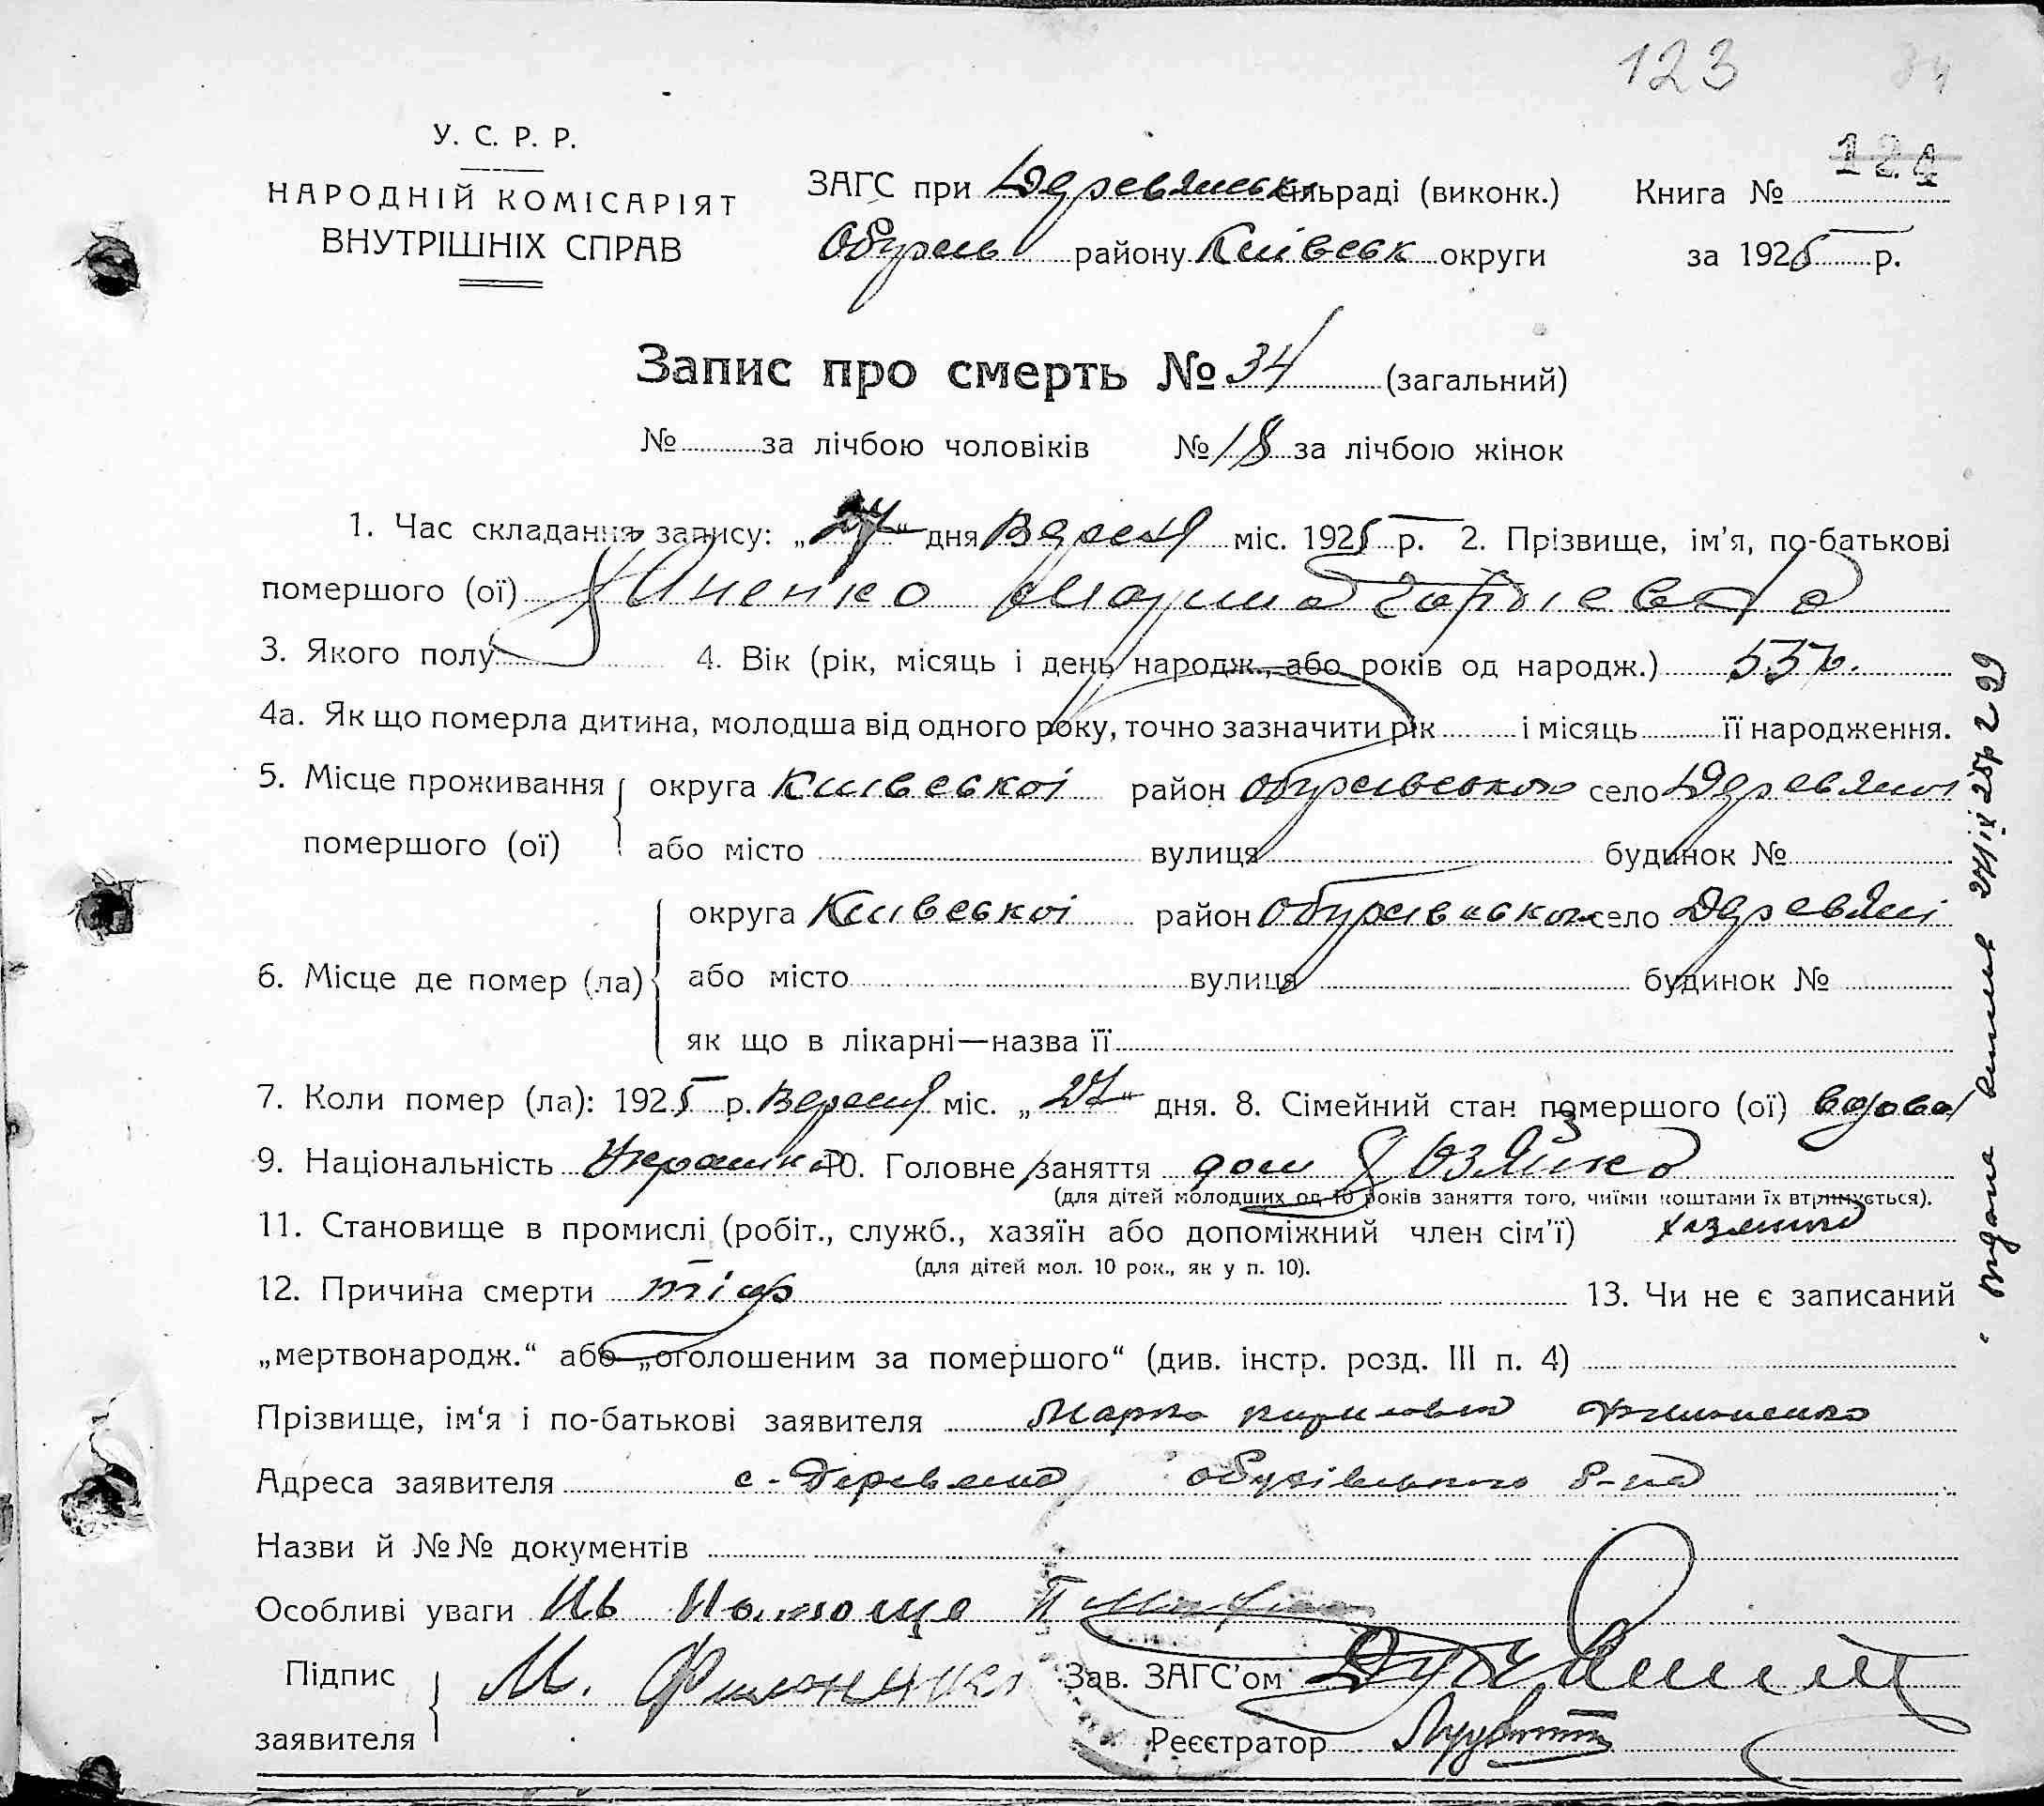 123 34
У. С. Р. Р.
НАРОДНІЙ КОМІСАРІЯТ
ВНУТРІШНІХ СПРАВ
ЗАГС при Деревянськ сільраді (виконк.) Книга № 124
району Київськ округи за 1925 р.
Запис про смерть № 34 (загальний)
№ за лічбою чоловіків № 18 за лічбою жінок
1. Час складання запису: „27“ дня Вересня міс. 1925 р. 2. Прізвище, ім'я, по-батькові
помершого (ої) Яненко
3. Якого полу 4. Вік (рік, місяць і день народж., або років од народж.) 53 р.
4а. Як що померла дитина, молодша від одного року, точно зазначити рік і місяць її народження.
5. Місце проживання помершого (ої) округа Київської район Обухівського село Деревяної
або місто вулиця будинок №
6. Місце де помер (ла) округа Київської район Обухівського село Деревяні
або місто вулиця будинок №
як що в лікарні—назва її
7. Коли помер (ла): 1925 р. Вересня міс. „27“ дня. 8. Сімейний стан помершого (ої) вдова
9. Національність Украінка 10. Головне заняття дом хозяйка
(для дітей молодших од 10 років заняття того, чиїми коштами їх втримується).
11. Становище в промислі (робіт., служб., хазяїн або допоміжний член сім'ї)
(для дітей мол. 10 рок., як у п. 10).
12. Причина смерти тіф 13. Чи не є записаний
„мертвонародж.“ або „оголошеним за помершого“ (див. інстр. розд. III п. 4)
Прізвище, ім'я і по-батькові заявителя Марко Филоненко
Адреса заявителя с. Деревяна Обухівського р-на
Назви й №№ документів
Особливі уваги
Підпис заявителя М. Филоненко Зав. ЗАГС'ом
Реєстратор